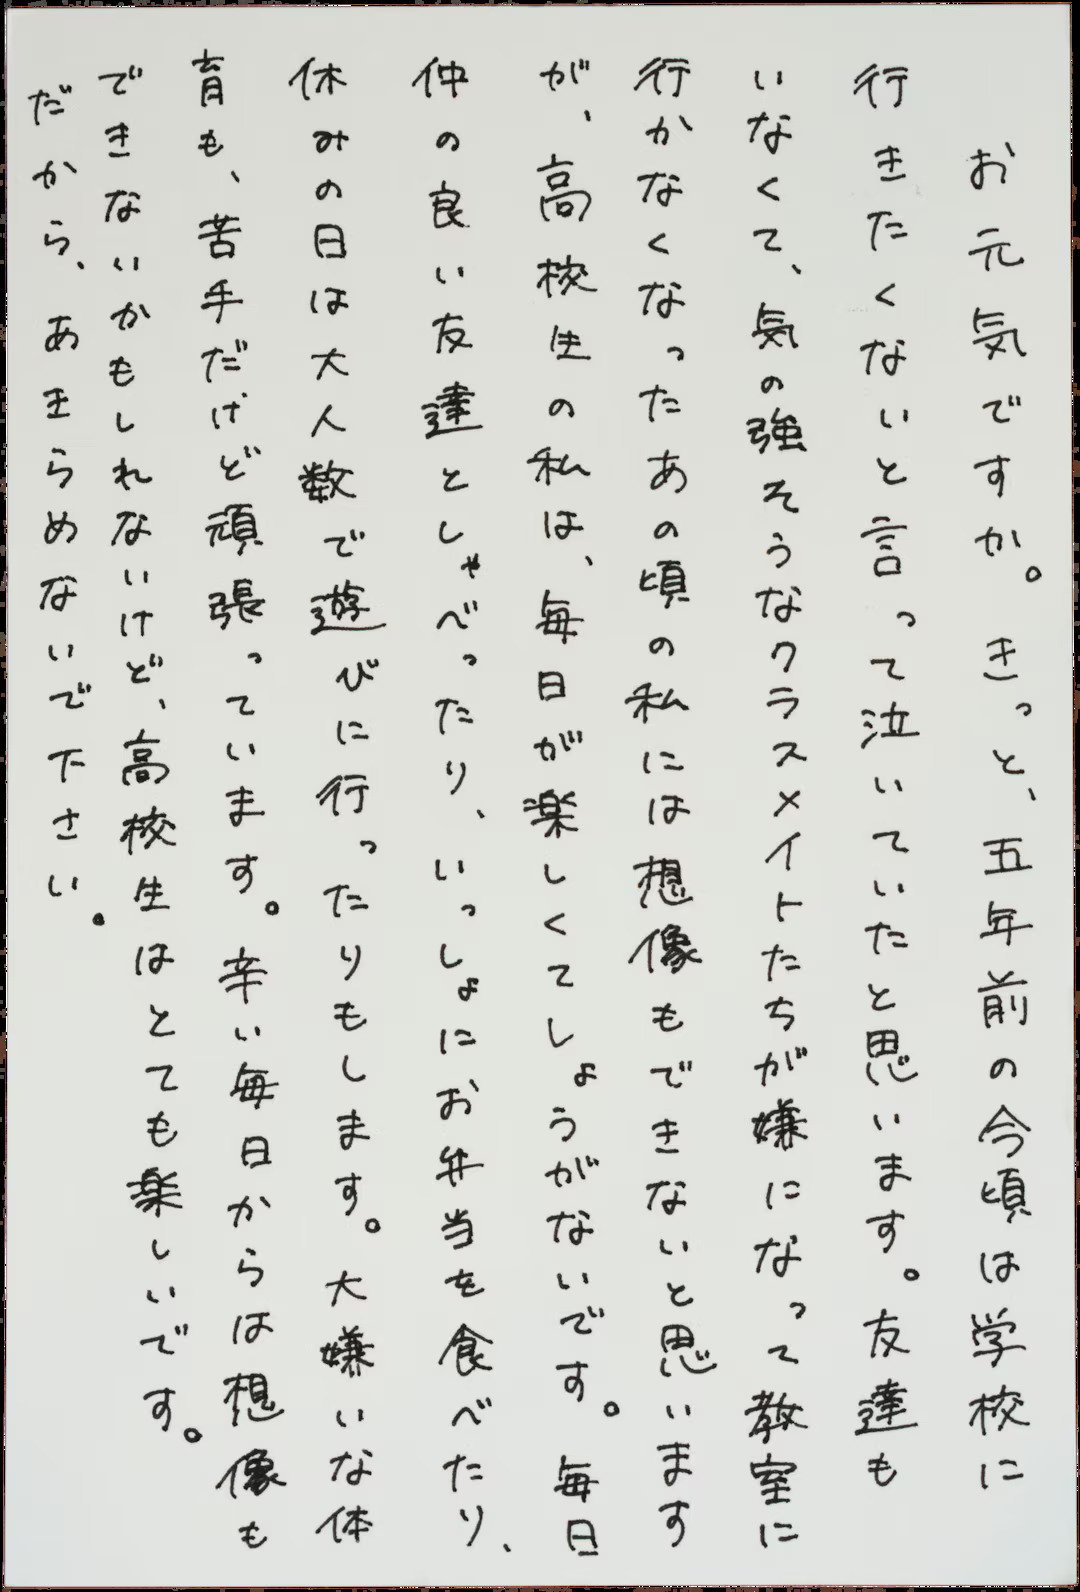 お元気ですか。きっと、五年前の今頃は学校に
行きたくないと言って泣いていたと思います。友達も
いなくて、気の強そうなクラスメイトたちが嫌になって教室に
行かなくなったあの頃の私には想像もできないと思います
が、高校生の私は、毎日が楽しくてしょうがないです。毎日
仲の良い友達としゃべったり、いっしょにお弁当を食べたり、
休みの日は大人数で遊びに行ったりもします。大嫌いな体
育も、苦手だけど頑張っています。辛い毎日からは想像も
できないかもしれないけど、高校生はとても楽しいです。
だから、あきらめないで下さい。